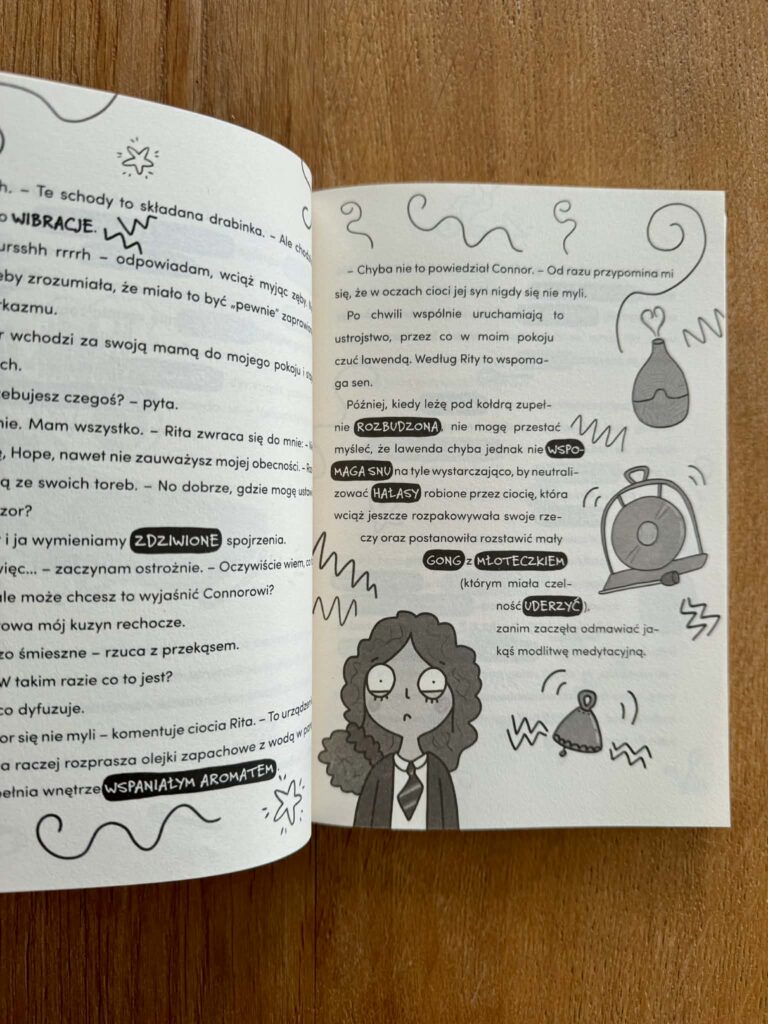 – Te schody to składana drabinka. – Ale
WIBRACJE.
ursshh rrrrh – odpowiadam, wciąż myjąc zęby.
eby zrozumiała, że miało to być „pewnie”
rkazmu.
r wchodzi za swoją mamą do mojego pokoju i
ch.
zebujesz czegoś? – pyta.
nie. Mam wszystko. – Rita zwraca się do mnie: –
ę, Hope, nawet nie zauważysz mojej obecności. –
ą ze swoich toreb. – No dobrze, gdzie mogę
zor?
r i ja wymieniamy ZDZIWIONE spojrzenia.
więc... – zaczynam ostrożnie. – Oczywiście wiem,
ale może chcesz to wyjaśnić Connorowi?
rowa mój kuzyn rechocze.
zo śmieszne – rzuca z przekąsem.
W takim razie co to jest?
co dyfuzuje.
or się nie myli – komentuje ciocia Rita. – To
a raczej rozprasza olejki zapachowe z wodą w
pełnia wnętrze WSPANIAŁYM AROMATEM.
– Chyba nie to powiedział Connor. – Od razu przypomina mi
się, że w oczach cioci jej syn nigdy się nie myli.
Po chwili wspólnie uruchamiają to
ustrojstwo, przez co w moim pokoju
czuć lawendą. Według Rity to wspoma-
ga sen.
Później, kiedy leżę pod kołdrą zupeł-
nie ROZBUDZONA, nie mogę przestać
myśleć, że lawenda chyba jednak nie WSPO-
MAGA SNU na tyle wystarczająco, by neutrali-
zować HAŁASY robione przez ciocię, która
wciąż jeszcze rozpakowywała swoje rze-
czy oraz postanowiła rozstawić mały
GONG z MŁOTECZKIEM
(którym miała czel-
ność UDERZYĆ),
zanim zaczęła odmawiać ja-
kąś modlitwę medytacyjną.